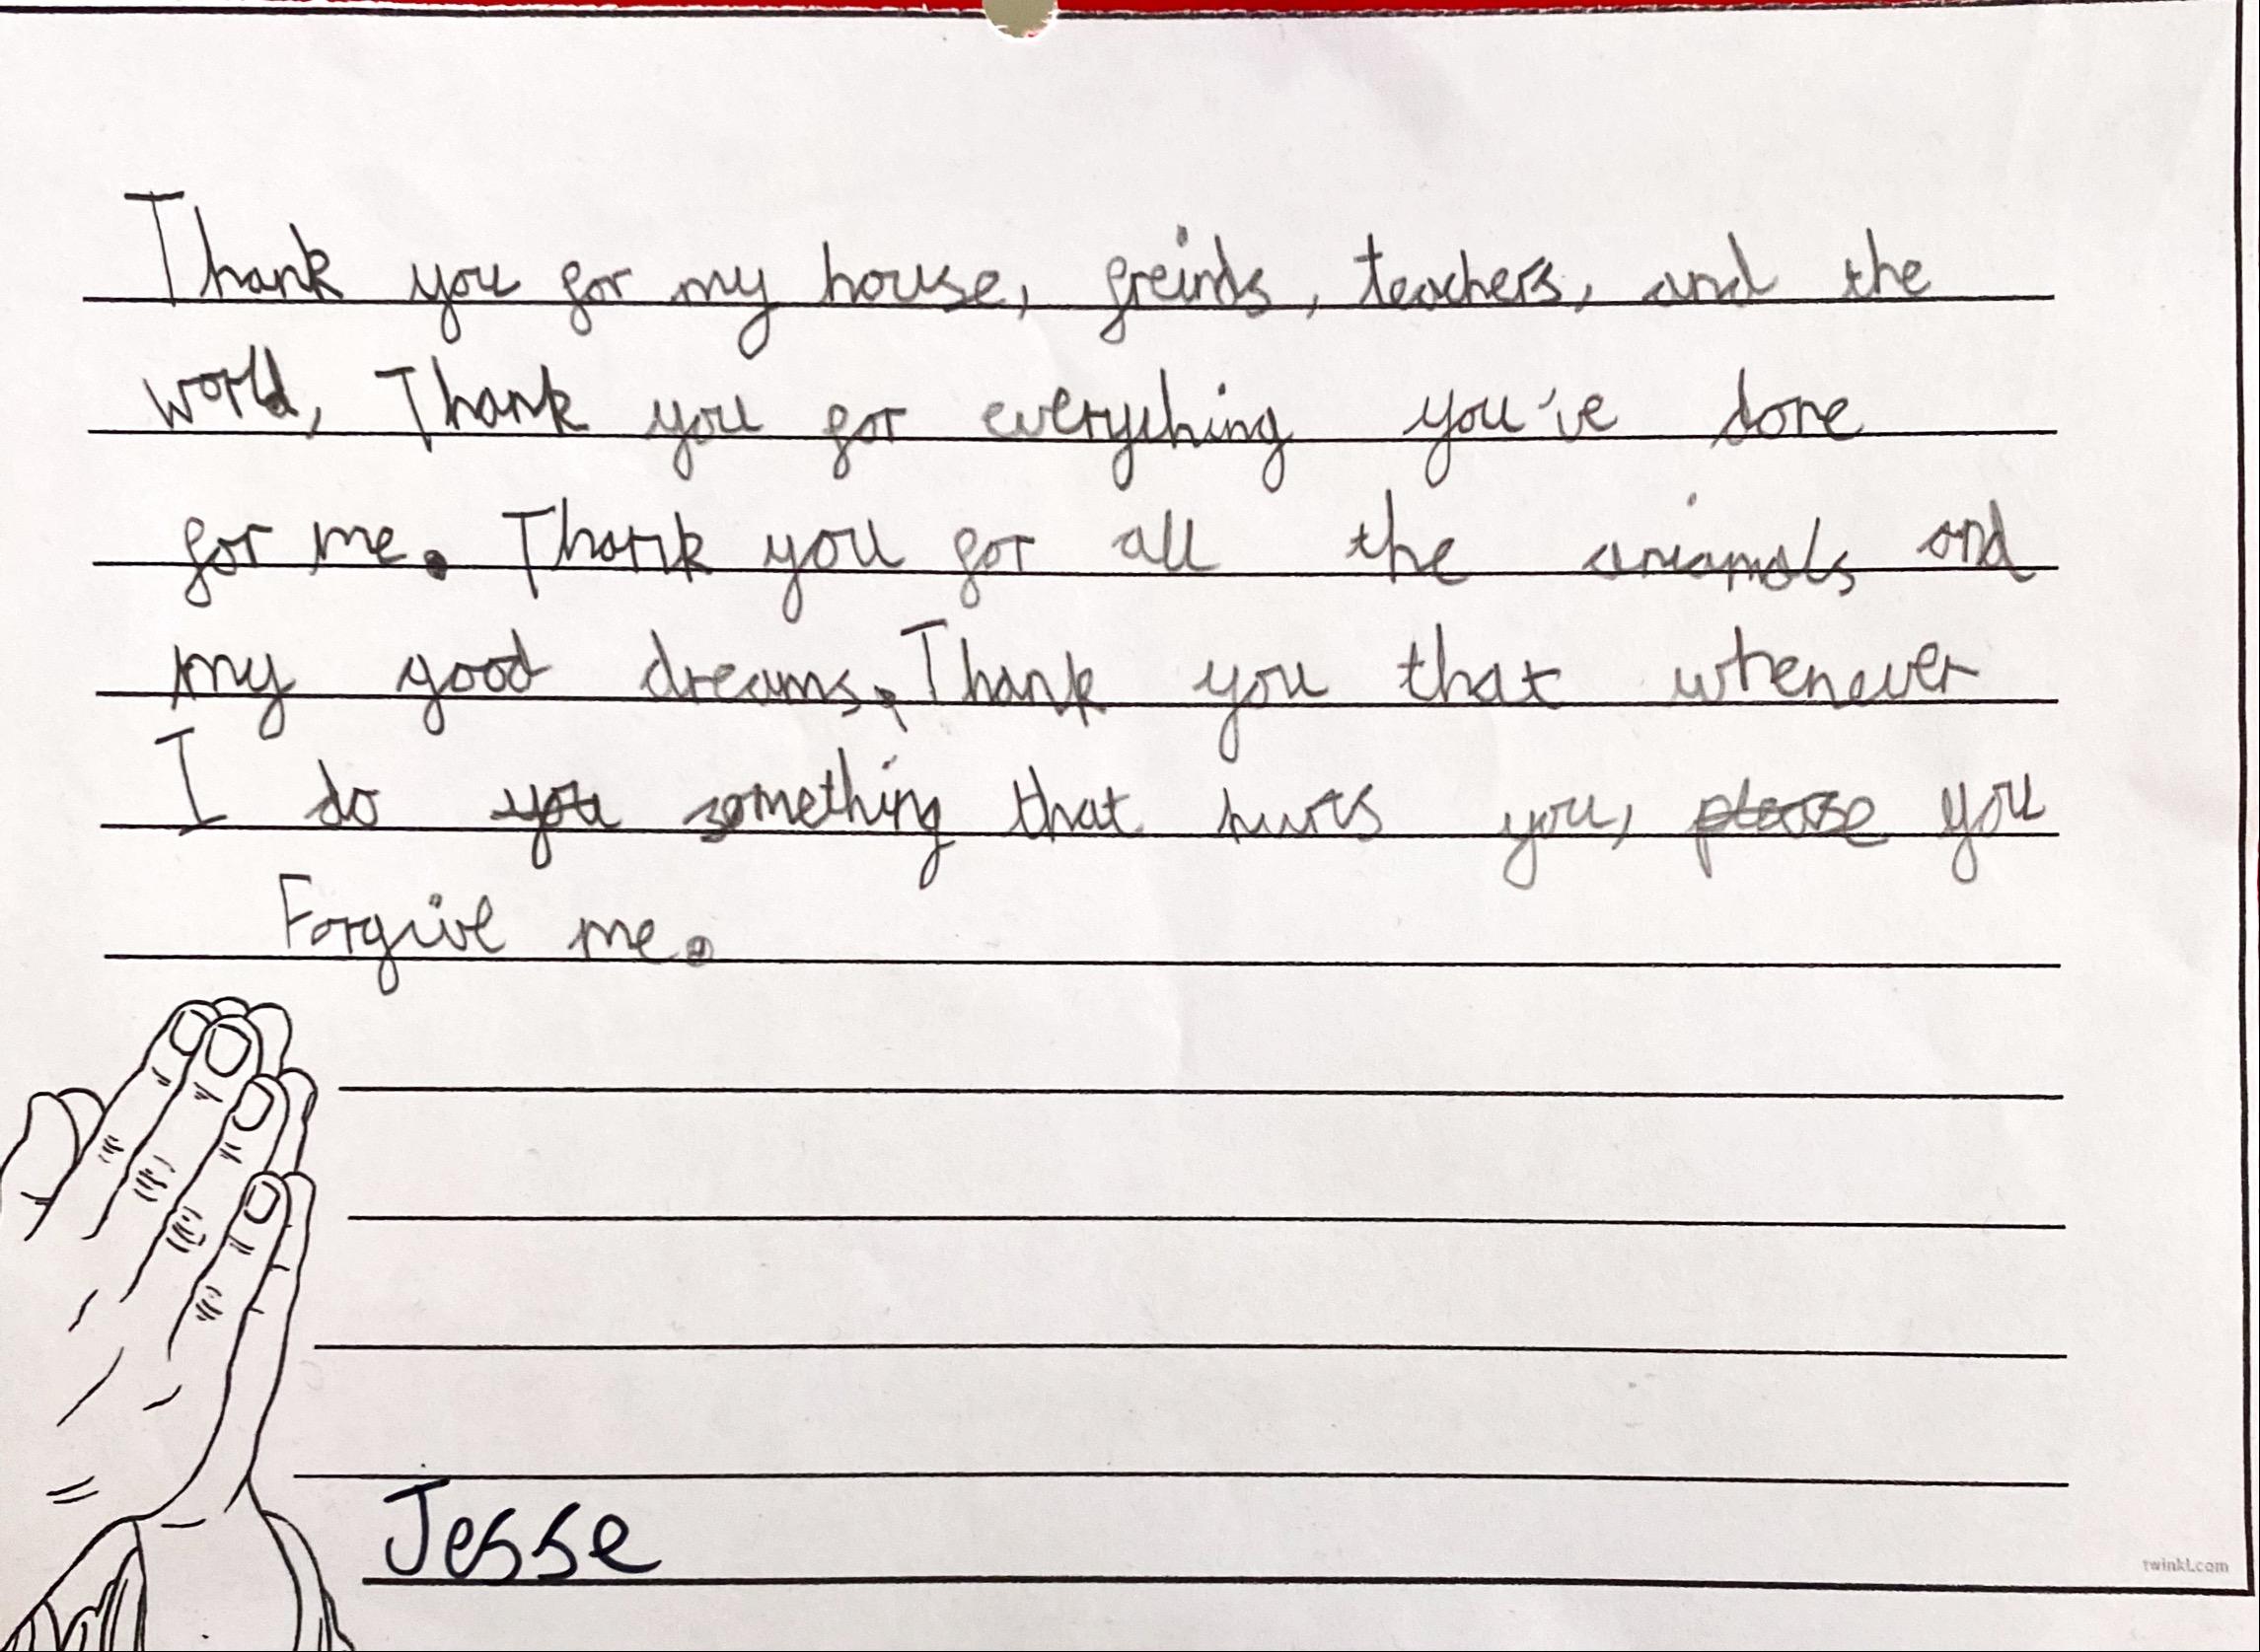 Thank you for my house, freinds, teachers, and the
world, Thank you for everything you've done
for me. Thank you for all the aniamals and
my good dreams, Thank you that whenever
I do you something that hurts you, please you
Forgive me.
Jesse
twinkl.com